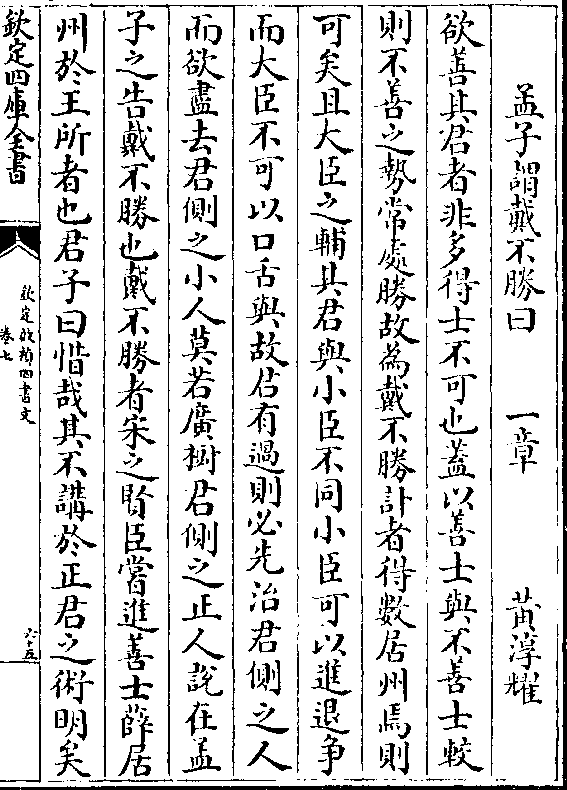 孟子謂戴不勝曰　一章　黃淳耀
欲善其君者非多得士不可也蓋以善士與不善士較
則不善之勢常處勝故為戴不勝計者得數居州焉則
可矣且大臣之輔其君與小臣不同小臣可以進退爭
而大臣不可以口舌與故君有過則必先治君側之人
而欲盡去君側之小人莫若廣樹君側之正人說在孟
子之告戴不勝也戴不勝者宋之賢臣嘗進善士薛居
州於王所者也君子曰惜哉其不講於正君之術明矣
欽定四庫全書
欽定啟禎四書文
卷七
六十五